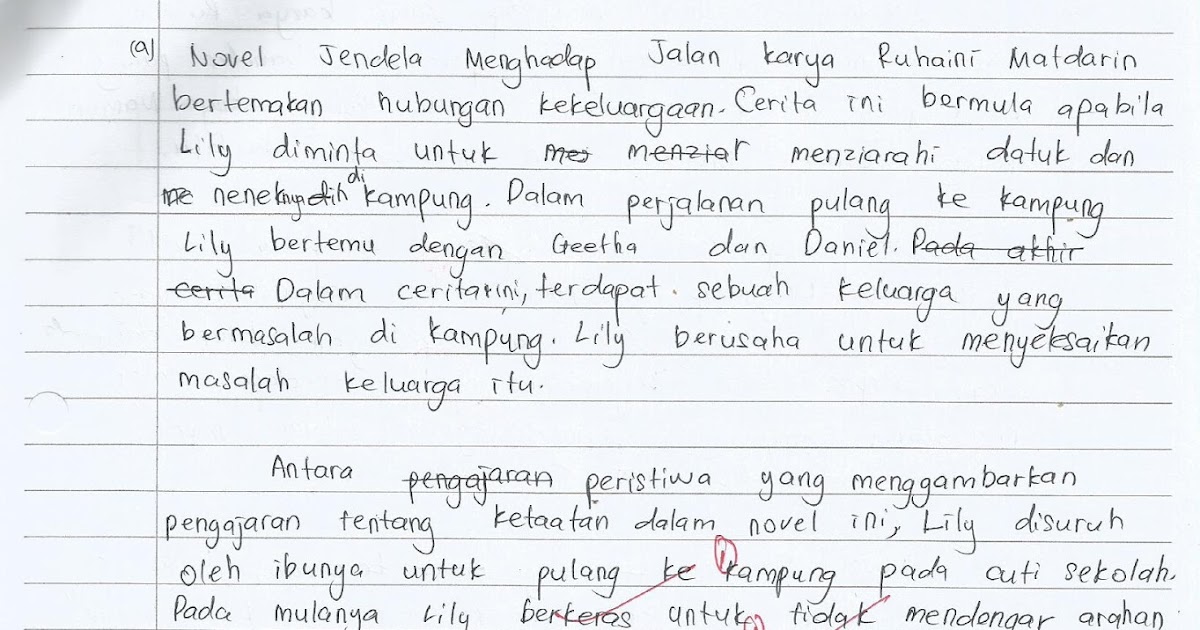 (a) Novel Jendela Menghadap Jalan karya Ruhaini Matdarin
bertemakan hubungan kekeluargaan. Cerita ini bermula apabila
Lily diminta untuk mes menziar menziarahi datuk dan
me neneknya di kampung. Dalam perjalanan pulang ke kampung
Lily bertemu dengan Geetha dan Daniel. Pada akhir
cerita Dalam cerita ini, terdapat sebuah keluarga yang
bermasalah di kampung. Lily berusaha untuk menyeleksaikan
masalah keluarga itu.
Antara pengajaran peristiwa yang menggambarkan
pengajaran tentang ketaatan dalam novel ini, Lily disuruh
oleh ibunya untuk pulang ke kampung pada cuti sekolah.
Pada mulanya Lily berkeras untuk tidak mendengar arahan